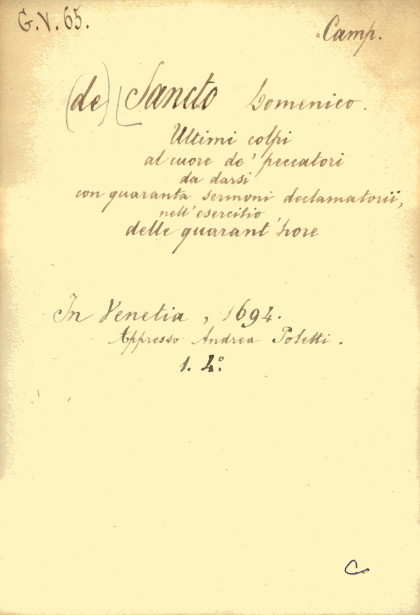 G.V. 65.
Camp.
(de) Sancto Domenico.
Ultimi colpi
al cuore de' peccatori
da darsi
con quaranta sermoni declamatorii,
nell'esercitio
delle quarant'hore
In Venetia, 1694.
Appresso Andrea Poletti.
1. 4°.
C